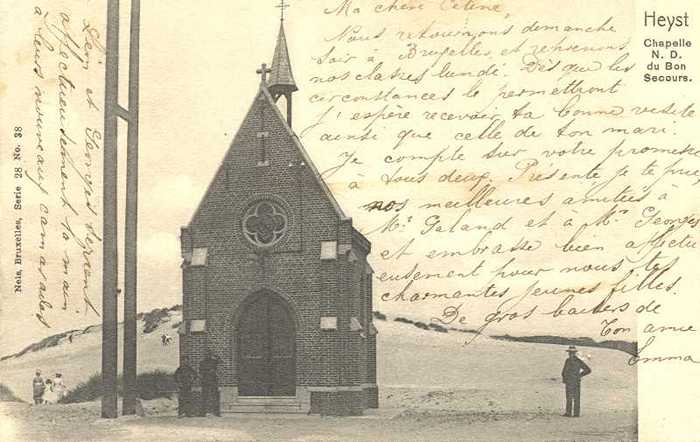 Ma chère Céline,
Nous retournons dimanche
soir à Bruxelles, et reprenons
nos classes lundi. Dès que les
circonstances le permettront
j'espère recevoir ta bonne visite
ainsi que celle de ton mari.
Je compte sur votre promesse
à tous deux. Présente je te prie
nos meilleures amitiés à
Mr. et à Mr. Georges
et embrasse bien affectu
eusement pour nous tes
charmantes jeunes filles.
De gros baisers de
Ton amie
Emma
Heyst
Chapelle
N. D.
du Bon
Secours.
Nels, Bruxelles, Serie 28 No. 38
et Georges serrent
affectueusement la main
à leurs nouveaux camarades